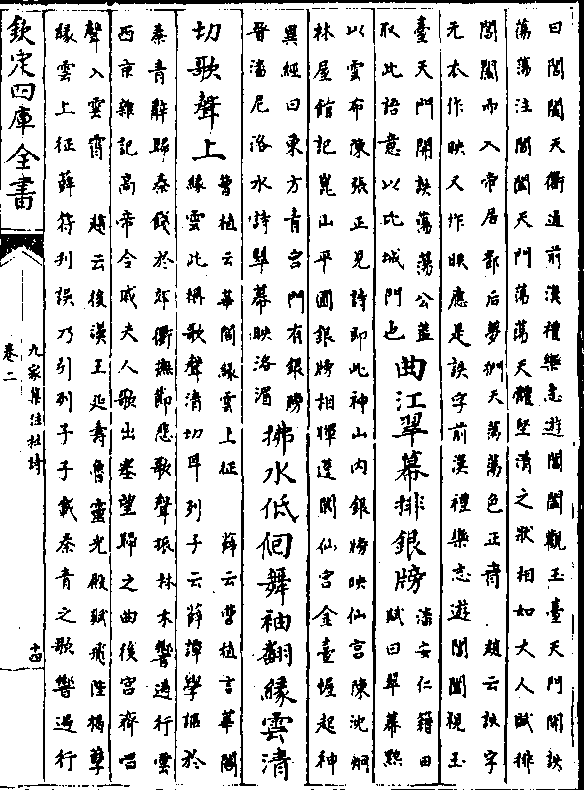 曰閶闔天衢通前漢禮樂志遊閶闔觀玉臺天門開詄
蕩蕩注閶闔天門蕩蕩天體堅清之狀相如大人賦排
閶闔而入帝居鄧后夢捫天蕩蕩色正青 趙云詄字
元本作映又作昳應是詄字前漢禮樂志遊閶闔觀玉
臺天門開詄蕩蕩公蓋
取此語意以比城門也
曲江翠幕排銀牓
潘安仁籍田
賦曰翠幕黕
以雲布陳張正見詩即此神山内銀牓映仙宫陳沈烱
林屋館記崑山平圃銀牓相輝蓬閬仙宫金臺崛起神
異經曰東方青宫門有銀牓
晉潘尼洛水詩翠幕映洛湄
拂水低佪舞袖翻緣雲清
切歌聲上
曹植云華閣緣雲上征 薛云曹植言華閣
緣雲此稱歌聲清切耳列子云薛譚學謳於
秦青辭歸秦餞於郊衢撫節悲歌聲振林木響遏行雲
西京雜記高帝令戚夫人歌出塞望歸之曲後宫齊唱
聲入雲霄 趙云後漢王延壽魯靈光殿賦飛陛揭孽
緣雲上征薛符刋誤乃引列子子載秦青之歌響遏行
欽定四庫全書
九家集注杜詩
卷二
十四